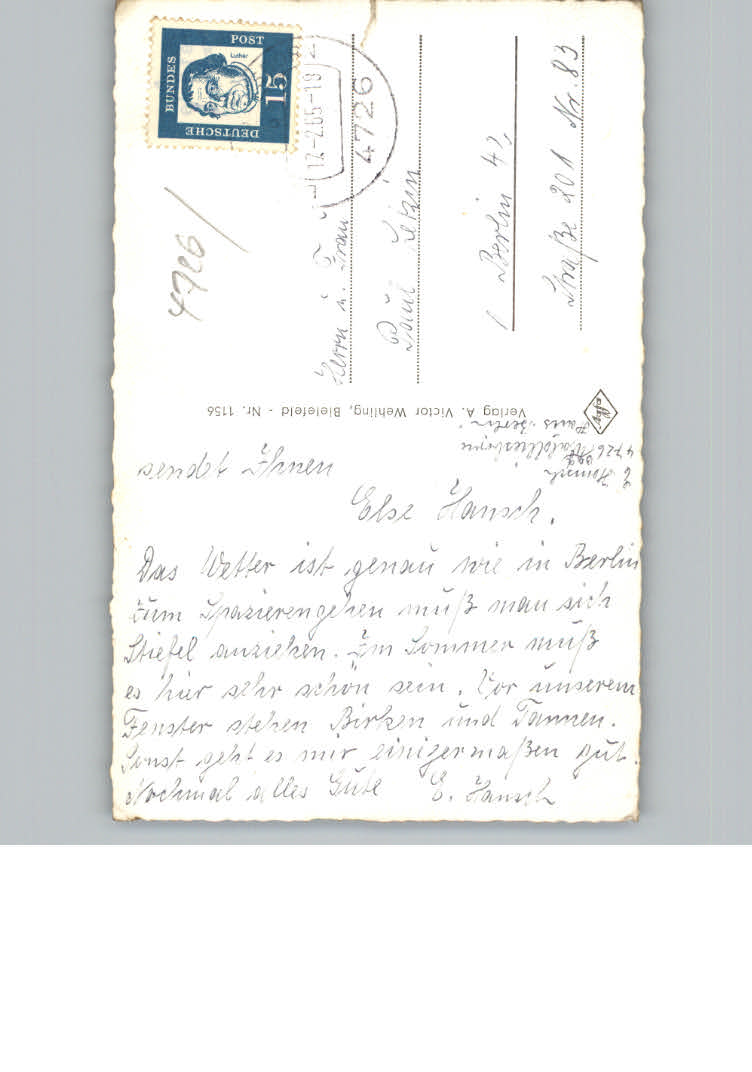 DEUTSCHE
BUNDES
POST
Luther
15
12-2.65-18
4726
4726/
Herrn u. Frau
Paul
1 Berlin 42
Straße 201 Nr. 83
Verlag A. Victor Wehling, Bielefeld - Nr. 1156
4726
Haus Berlin
sendet Ihnen
Else Hansch.
Das Wetter ist genau wie in Berlin
Zum Spazierengehen muß man sich
Stiefel anziehen. Im Sommer muß
es hier sehr schön sein. Vor unserem
Fenster stehen Birken und Tannen.
Sonst geht es mir einigermaßen gut.
Nochmal alles Gute E. Hansch